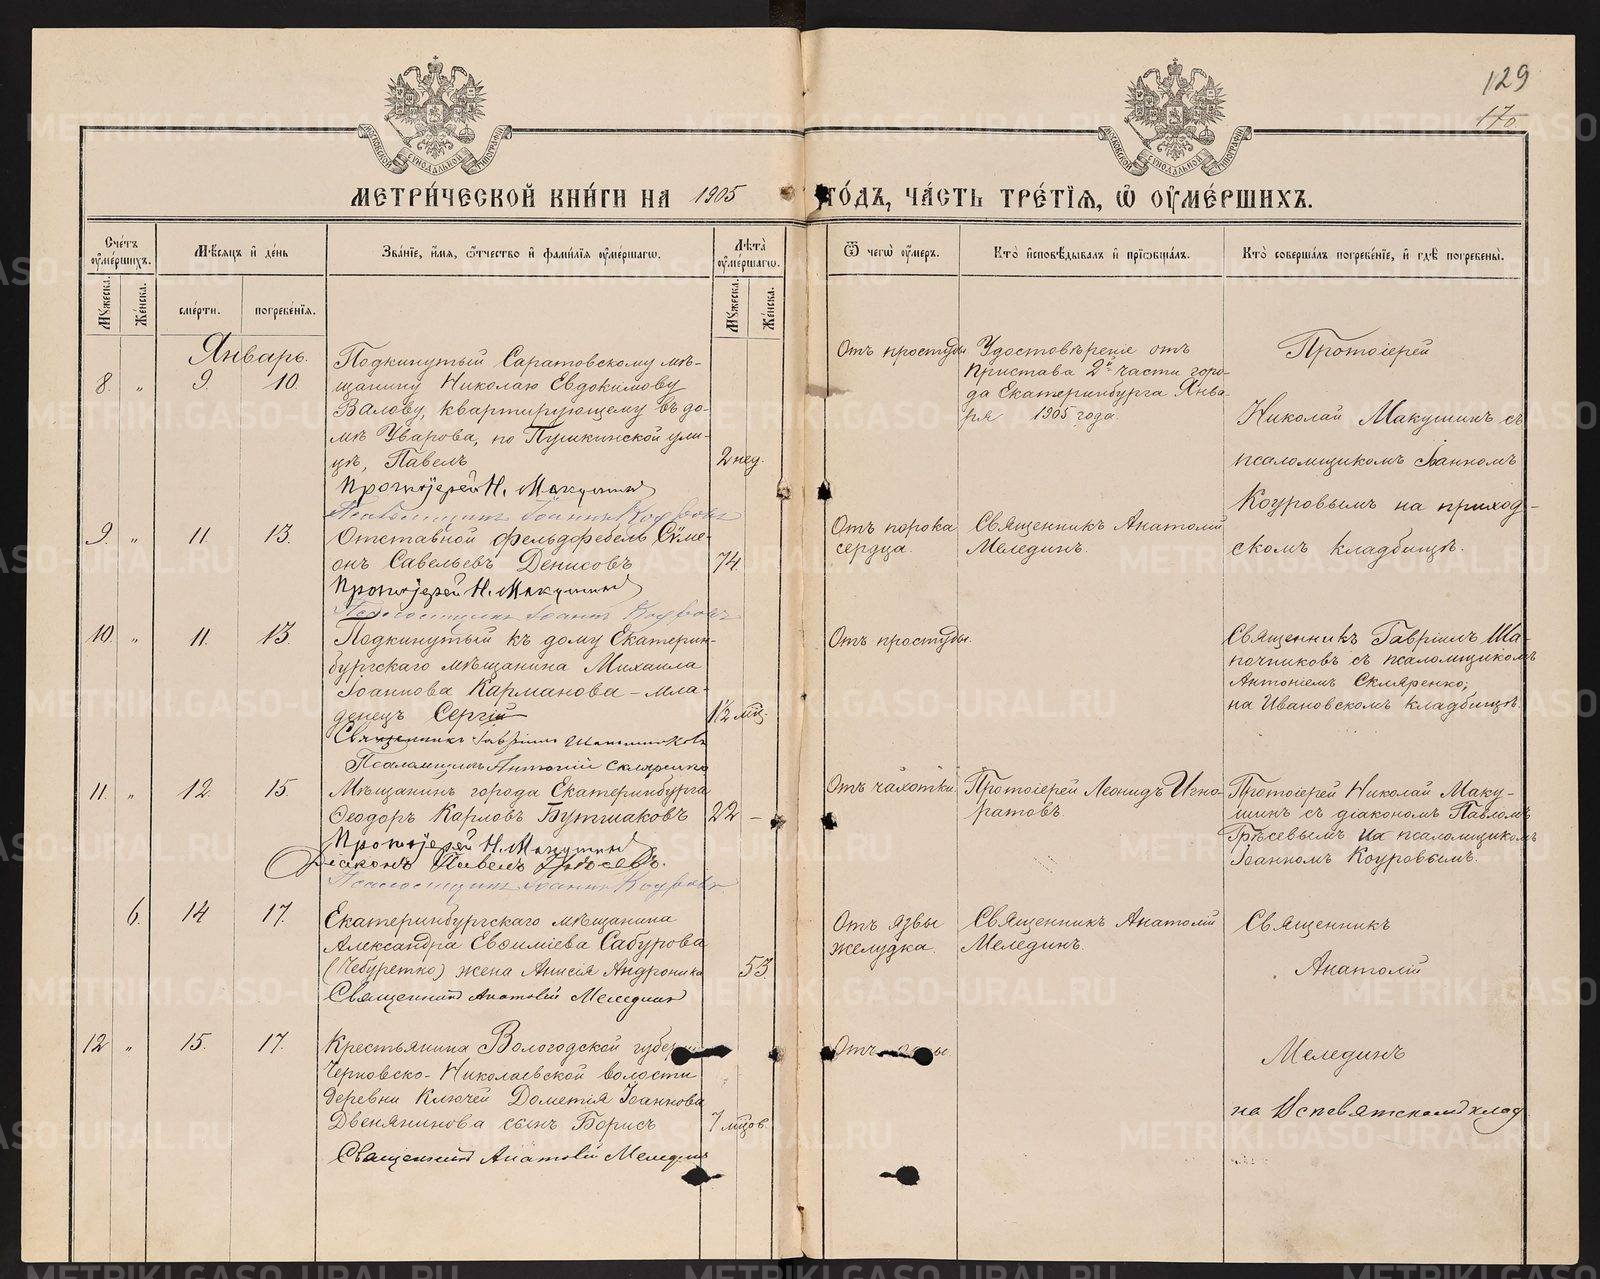 129
170
МОСКОВСКОЙ СѴНОДАЛЬНОЙ ТИПОГРАФІИ
МОСКОВСКОЙ СѴНОДАЛЬНОЙ ТИПОГРАФІИ
МЕТРИ́ЧЕСКОЙ КНИ́ГИ НА 1905 ГО́ДЪ, ЧА́СТЬ ТРЕ́ТІѦ, Ѡ҆ ОУ҆МЕ́РШИХЪ.
Сче́тъ оу҆ме́ршихъ.
Мѣ́сѧцъ и҆ де́нь
Зва́нїе, и҆́мѧ, ѻ҆́тчество и҆ фами́лїѧ оу҆ме́ршагѡ.
Лѣ́та оу҆ме́ршагѡ.
Ѿ чегѡ̀ оу҆́меръ.
Кто̀ и҆сповѣ́дывалъ и҆ прїѡбща́лъ.
Кто̀ соверша́лъ погребе́нїе, и҆ гдѣ̀ погребены̀.
Мꙋ́жеска.
Же́нска.
сме́рти.
погребе́нїѧ.
Мꙋ́жеска.
Же́нска.
Январь.
8. " 9. 10.
Подкинутый Саратовскому мѣ-
щанину Николаю Евдокимову
Валову, квартирующему въ до-
мѣ Уварова, по Пушкинской ули-
цѣ, Павелъ
2 нед.
Протоіерей Н. Макушинъ
Псаломщикъ Іоаннъ Коуровъ
Отъ простуды
Удостовѣреніе отъ
Пристава 2й части горо-
да Екатеринбурга Янва-
ря 1905 года.
Протоіерей
Николай Макушинъ съ
псаломщикомъ Іоанномъ
Коуровымъ на приход-
скомъ кладбищѣ.
9. " 11. 13.
Отставной фельдфебель Сѵме-
онъ Савельевъ Денисовъ
74.
Протоіерей Н. Макушинъ
Псаломщикъ Іоаннъ Коуровъ
Отъ порока
сердца.
Священникъ Анатолій
Мелединъ.
10. " 11. 13.
Подкинутый къ дому Екатерин-
бургскаго мѣщанина Михаила
Іоаннова Карманова – мла-
денецъ Сергій
1½ мц.
Священникъ Гавріилъ Шапочниковъ
Псаломщикъ Антоній Скляренко
Отъ простуды.
Священникъ Гавріилъ Ша-
почниковъ съ псаломщикомъ
Антоніемъ Скляренко;
на Ивановскомъ кладбищѣ.
11. " 12. 15.
Мѣщанинъ города Екатеринбурга
Ѳеодоръ Карловъ Бутшаковъ
22 –
Протоіерей Н. Макушинъ
Діаконъ Павелъ Грѣсевъ.
Псаломщикъ Іоаннъ Коуровъ.
Отъ чахотки.
Протоіерей Леонидъ Игно-
ратовъ.
Протоіерей Николай Маку-
шинъ съ діакономъ Павломъ
Грѣсевымъ и псаломщикомъ
Іоанномъ Коуровымъ.
6. 14 17.
Екатеринбургскаго мѣщанина
Александра Евѳиміева Сабурова
(Чебуретко) жена Анисія Андроника
53.
Священникъ Анатолій Мелединъ
Отъ язвы
желудка.
Священникъ Анатолій
Мелединъ.
Священникъ
Анатолій
Мелединъ
на Всесвятскомъ клад
12 " 15. 17.
Крестьянина Вологодской губерніи
Черновско-Николаевской волости
деревни Ключей Дометія Іоаннова
Двенянинова сынъ Борисъ
7 мцов.
Священникъ Анатолій Мелединъ
Отъ